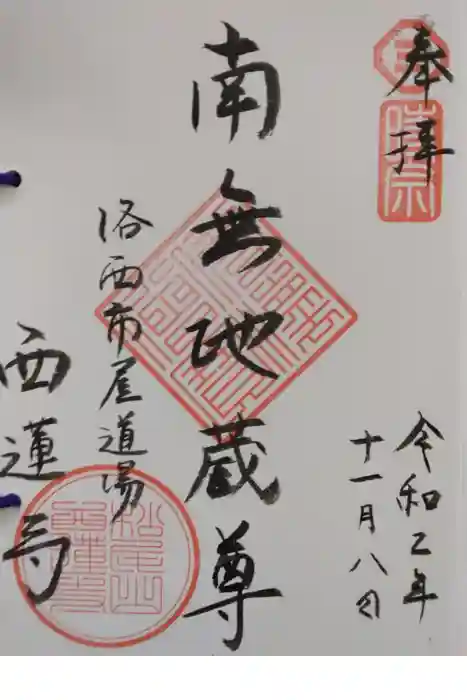 奉拝
令和乙年
十一月八日
南無地蔵尊
洛西市屋道場
西蓮寺